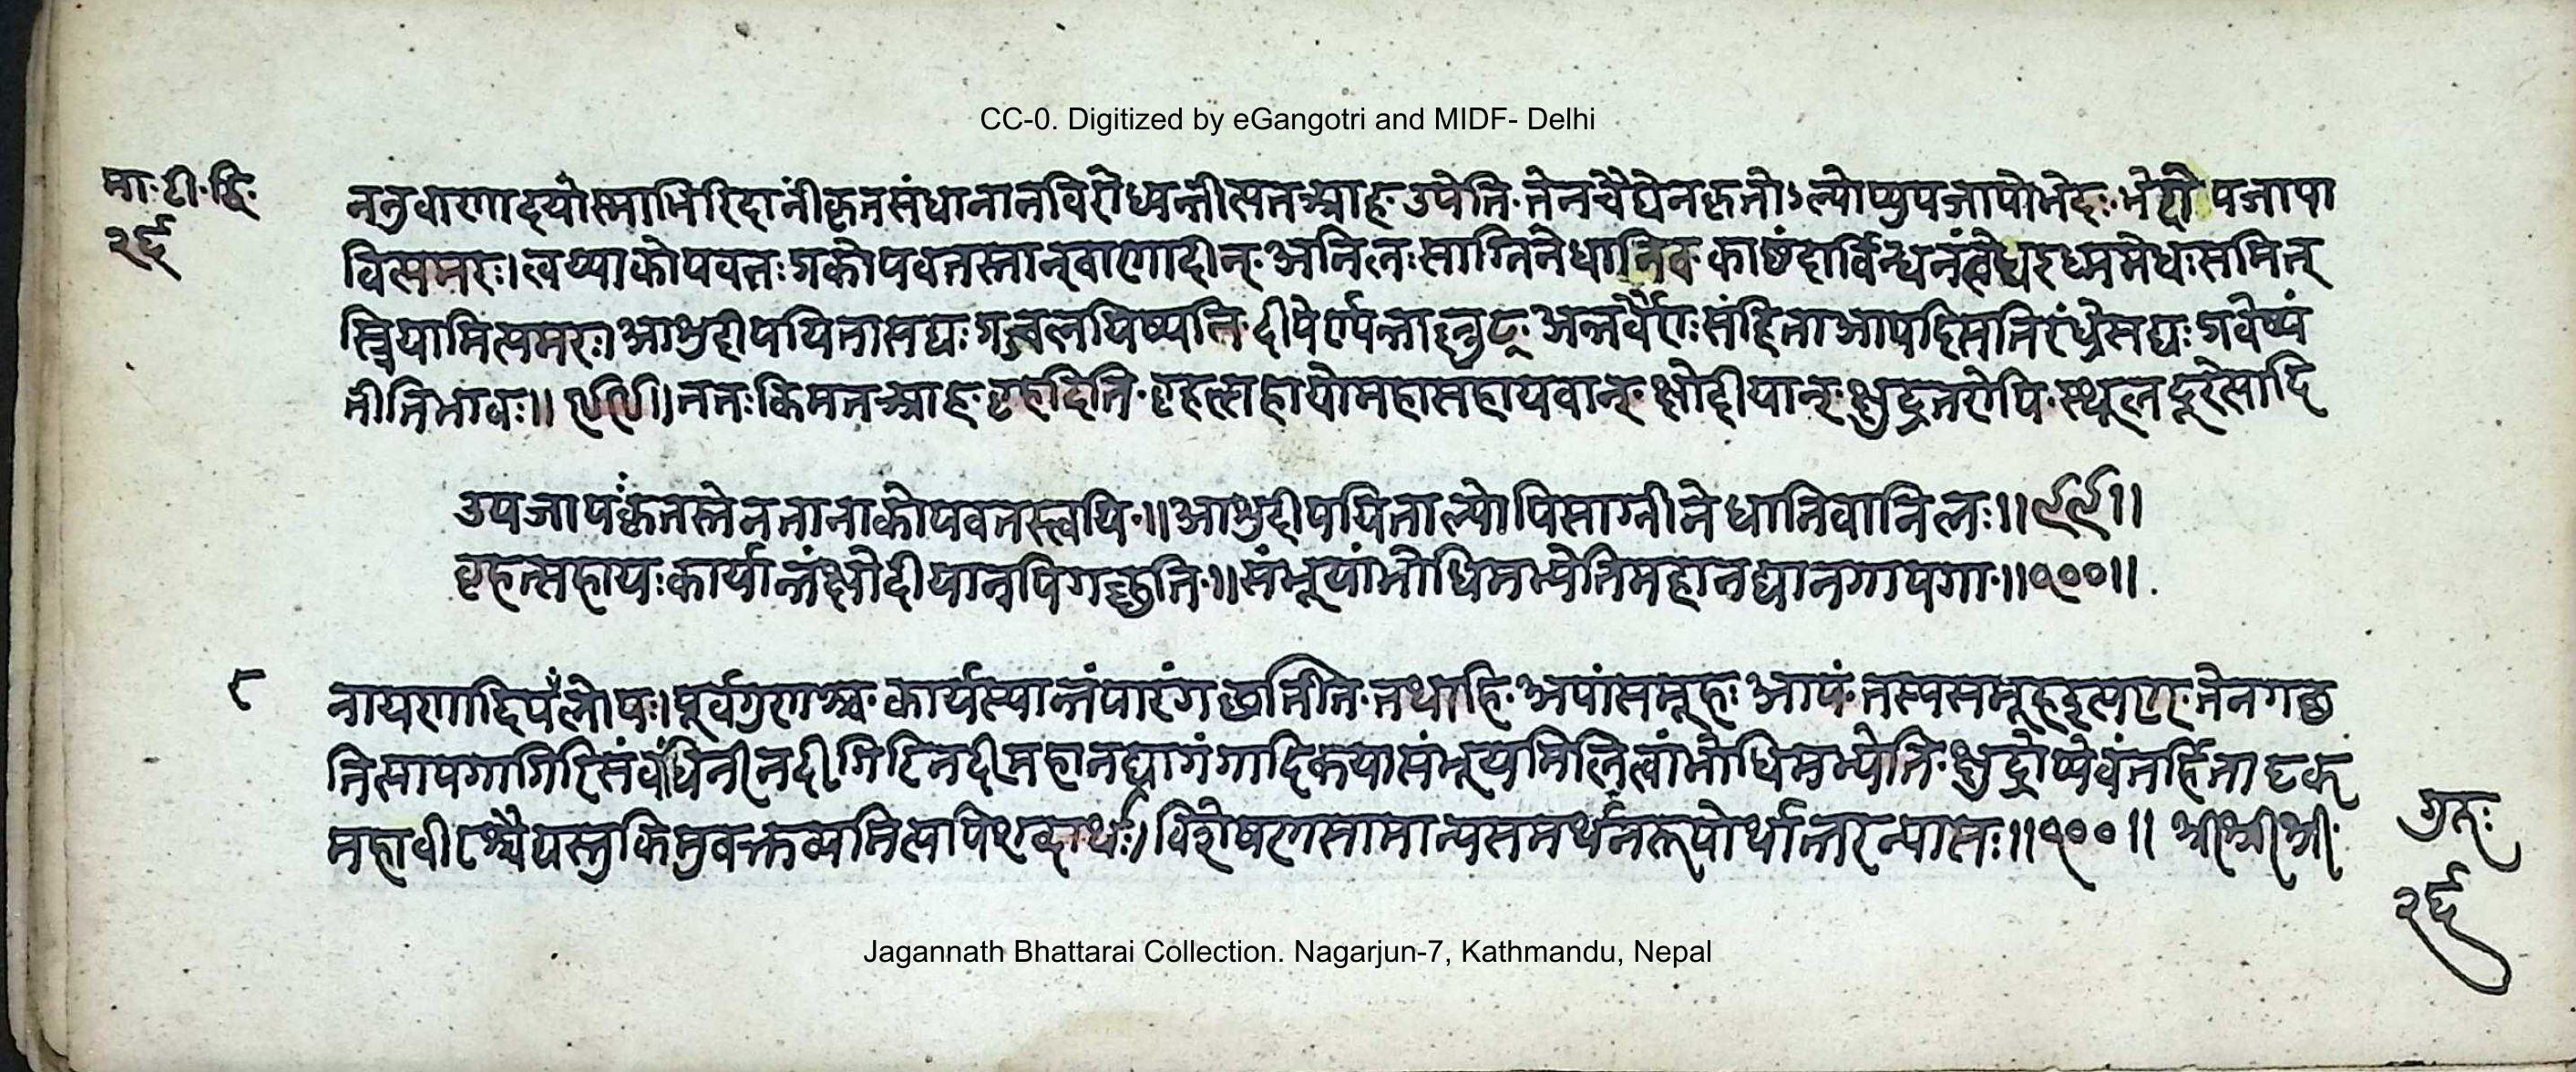 CC-0. Digitized by eGangotri and MIDF- Delhi
मा॰ टी॰ द्वि॰
२६
ननुवाणादयोस्माभिरिदानींकृतसंधानानविरोध्यन्तीत्यतआह॰ उपेति॰ तेनचैद्येनकृतोऽल्पोप्युपजापोभेदः॰ भेदोपजापा
वित्यमरः। त्वय्याकोपवतःशकोपवतस्तान्वाणादीन्॰ अनिलःसाग्निनेधानिव काष्ठंदार्विन्धनंत्वेधइध्ममेधःसमित्
स्त्रियामित्यमरः। आशुदीपयितासद्यः प्रज्वलयिष्यति॰ दीपेर्ण्यन्ताल्लुट्॰ अन्तर्वैराःसंहिताआपदिसतिरंध्रेसद्यः
नीतिभावः॥ ९९॥ ततःकिमतआह॰ बृहदिति॰ बृहत्सहायोमहासहायवान्॰ क्षोदीयान्॰ क्षुद्रतरोपि॰ स्थूलदूरेत्यादि
उपजापःकृतस्तेनतानाकोपवतस्त्वयि॰॥ आशुदीपयिताल्पोपिसाग्नीनेधानिवानिलः॥ ९९॥
बृहत्सहायःकार्यान्तंक्षोदीयानपिगच्छति॰॥ संभूयांभोधिमभ्येतिमहानद्यानगापगा॰॥ १००॥
८ नायणादिपर्लोपः। पूर्वगुणश्च॰ कार्यस्यान्तंपारंगच्छतीति॰ तथाहि॰ अपांसमूहः आपं॰ तस्यसमूहइत्यण्॰ तेनगच्छ
तिसापगागिरिसंबंधिनीनदीगिरिनदीमहानद्यागंगादिकयासंभूयमिलित्वांभोधिमभ्येति॰ क्षुद्रोप्येवंतर्हितादृक्
महावीरश्चैद्यस्तुकिमुवक्तव्यमित्यपिशब्दार्थः। विशेषणसामान्यसमर्थनरूपोर्थान्तरन्यासः॥ १००॥ श्रीश्रीश्री॰
गुरुः
२६
Jagannath Bhattarai Collection. Nagarjun-7, Kathmandu, Nepal